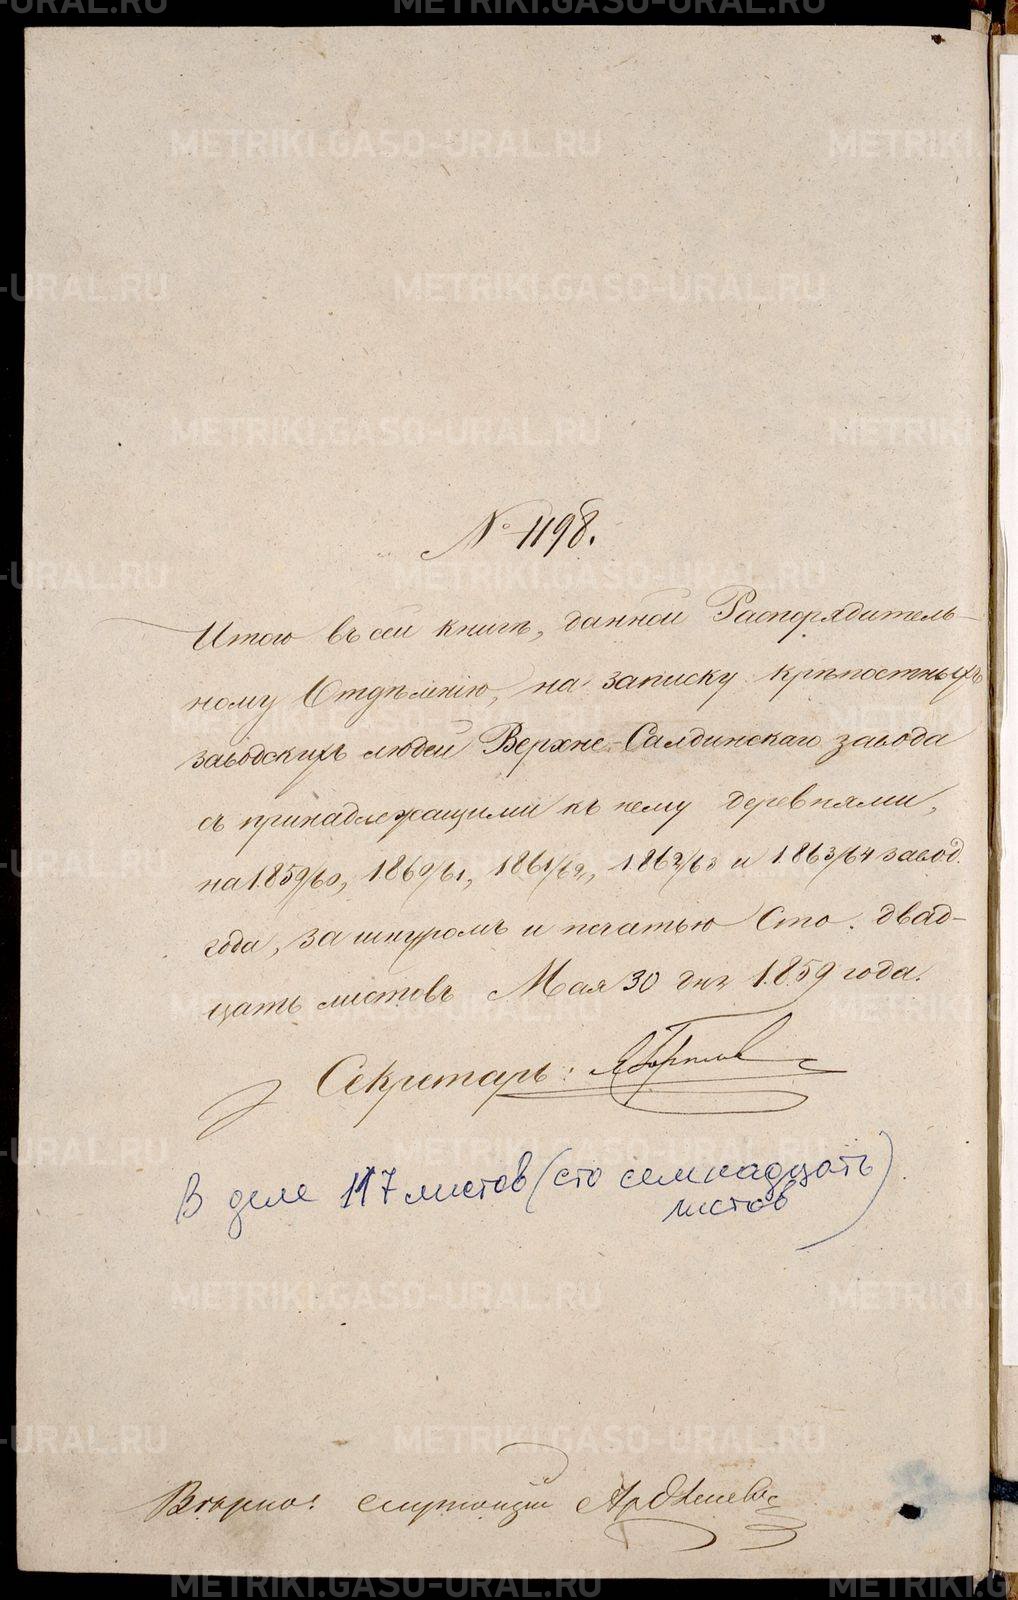 № 1198.
Итого въ сей книгѣ, данной Распорядитель-
ному Отдѣленію, на записку крѣпостныхъ
заводскихъ людей Верхне-Салдинскаго завода
съ принадлежащими къ нему деревнями,
на 1859/60, 1860/61, 1861/62, 1862/63 и 1863/64 завод.
года, за шнуромъ и печатью Сто двад-
цать листовъ Мая 30 дня 1859 года.
Секретарь:
В деле 117 листов (сто семнадцать)
листов
Вѣрно: служащій
METRIKI.GASO-URAL.RU